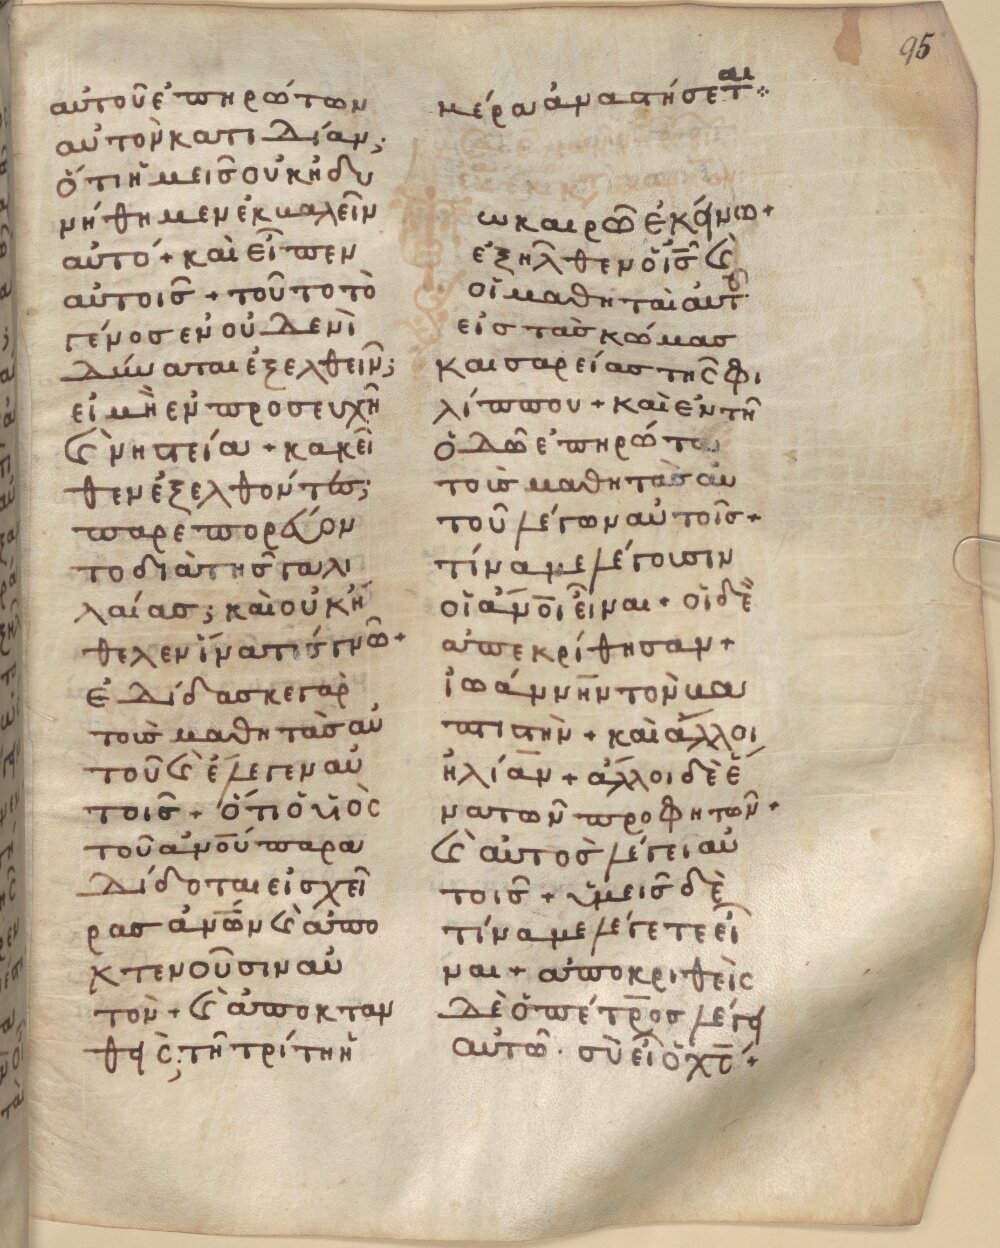 95
αὐτοῦ ἐπηρώτων
αὐτὸν κατιδίαν;
ὅτι ἡμεῖς οὐκ ἠδυ
νήθημεν ἐκβαλεῖν
αὐτό + καὶ εἶπεν
αὐτοῖς + τοῦτο τὸ
γένος ἐν οὐδενὶ
δύναται ἐξελθεῖν;
εἰ μὴ ἐν προσευχῆ
ϗ νηστεία + κακεῖ
θεν ἐξελθόντες;
παρεπορεύον
το διὰ τῆς γαλι
λαίας; καὶ οὐκ ἤ
θελεν ἵνα τίς γνῶ +
ἐδίδασκε γὰρ
τοὺς μαθητὰς αὐ
τοῦ ϗ ἔλεγεν αὐ
τοῖς + ὅτι ὁ υἱὸς
τοῦ ἀνο̅υ παρα
δίδοται εἰς χεῖ
ρας ἀνω̅ν ϗ ἀπο
κτενοῦσιν αὐ
τόν + ϗ ἀποκταν
θεὶς; τῆ τρίτη ἡ
μέρα ἀναστήσεται
ω καιρῶ ἐκείνω +
ἐξῆλθεν ὁ ις̅ ϗ
οἱ μαθηταὶ αὐτοῦ
εἰς τὰς κώμας
καισαρείας τῆς φι
λίππου + καὶ ἐν τῆ
ὁδῶ ἐπηρώτα
τοὺς μαθητὰς αὐ
τοῦ λέγων αὐτοῖς +
τίνα με λέγουσιν
οἱ ἄνο̅ι εἶναι + οἱ δὲ
ἀπεκρίθησαν +
ἰωάννην τὸν βα
πτιστὴν + καὶ ἄλλοι
ἠλίαν + ἄλλοι δὲ ἕ
να τῶν προφητῶν +
ϗ αὐτὸς λέγει αὐ
τοῖς + ὑμεῖς δὲ
τίνα με λέγετε εἶ
ναι + ἀποκριθεὶς
δὲ ὁ πέτρος λέγει
αὐτῶ· σὺ εἶ ὁ χς̅ +